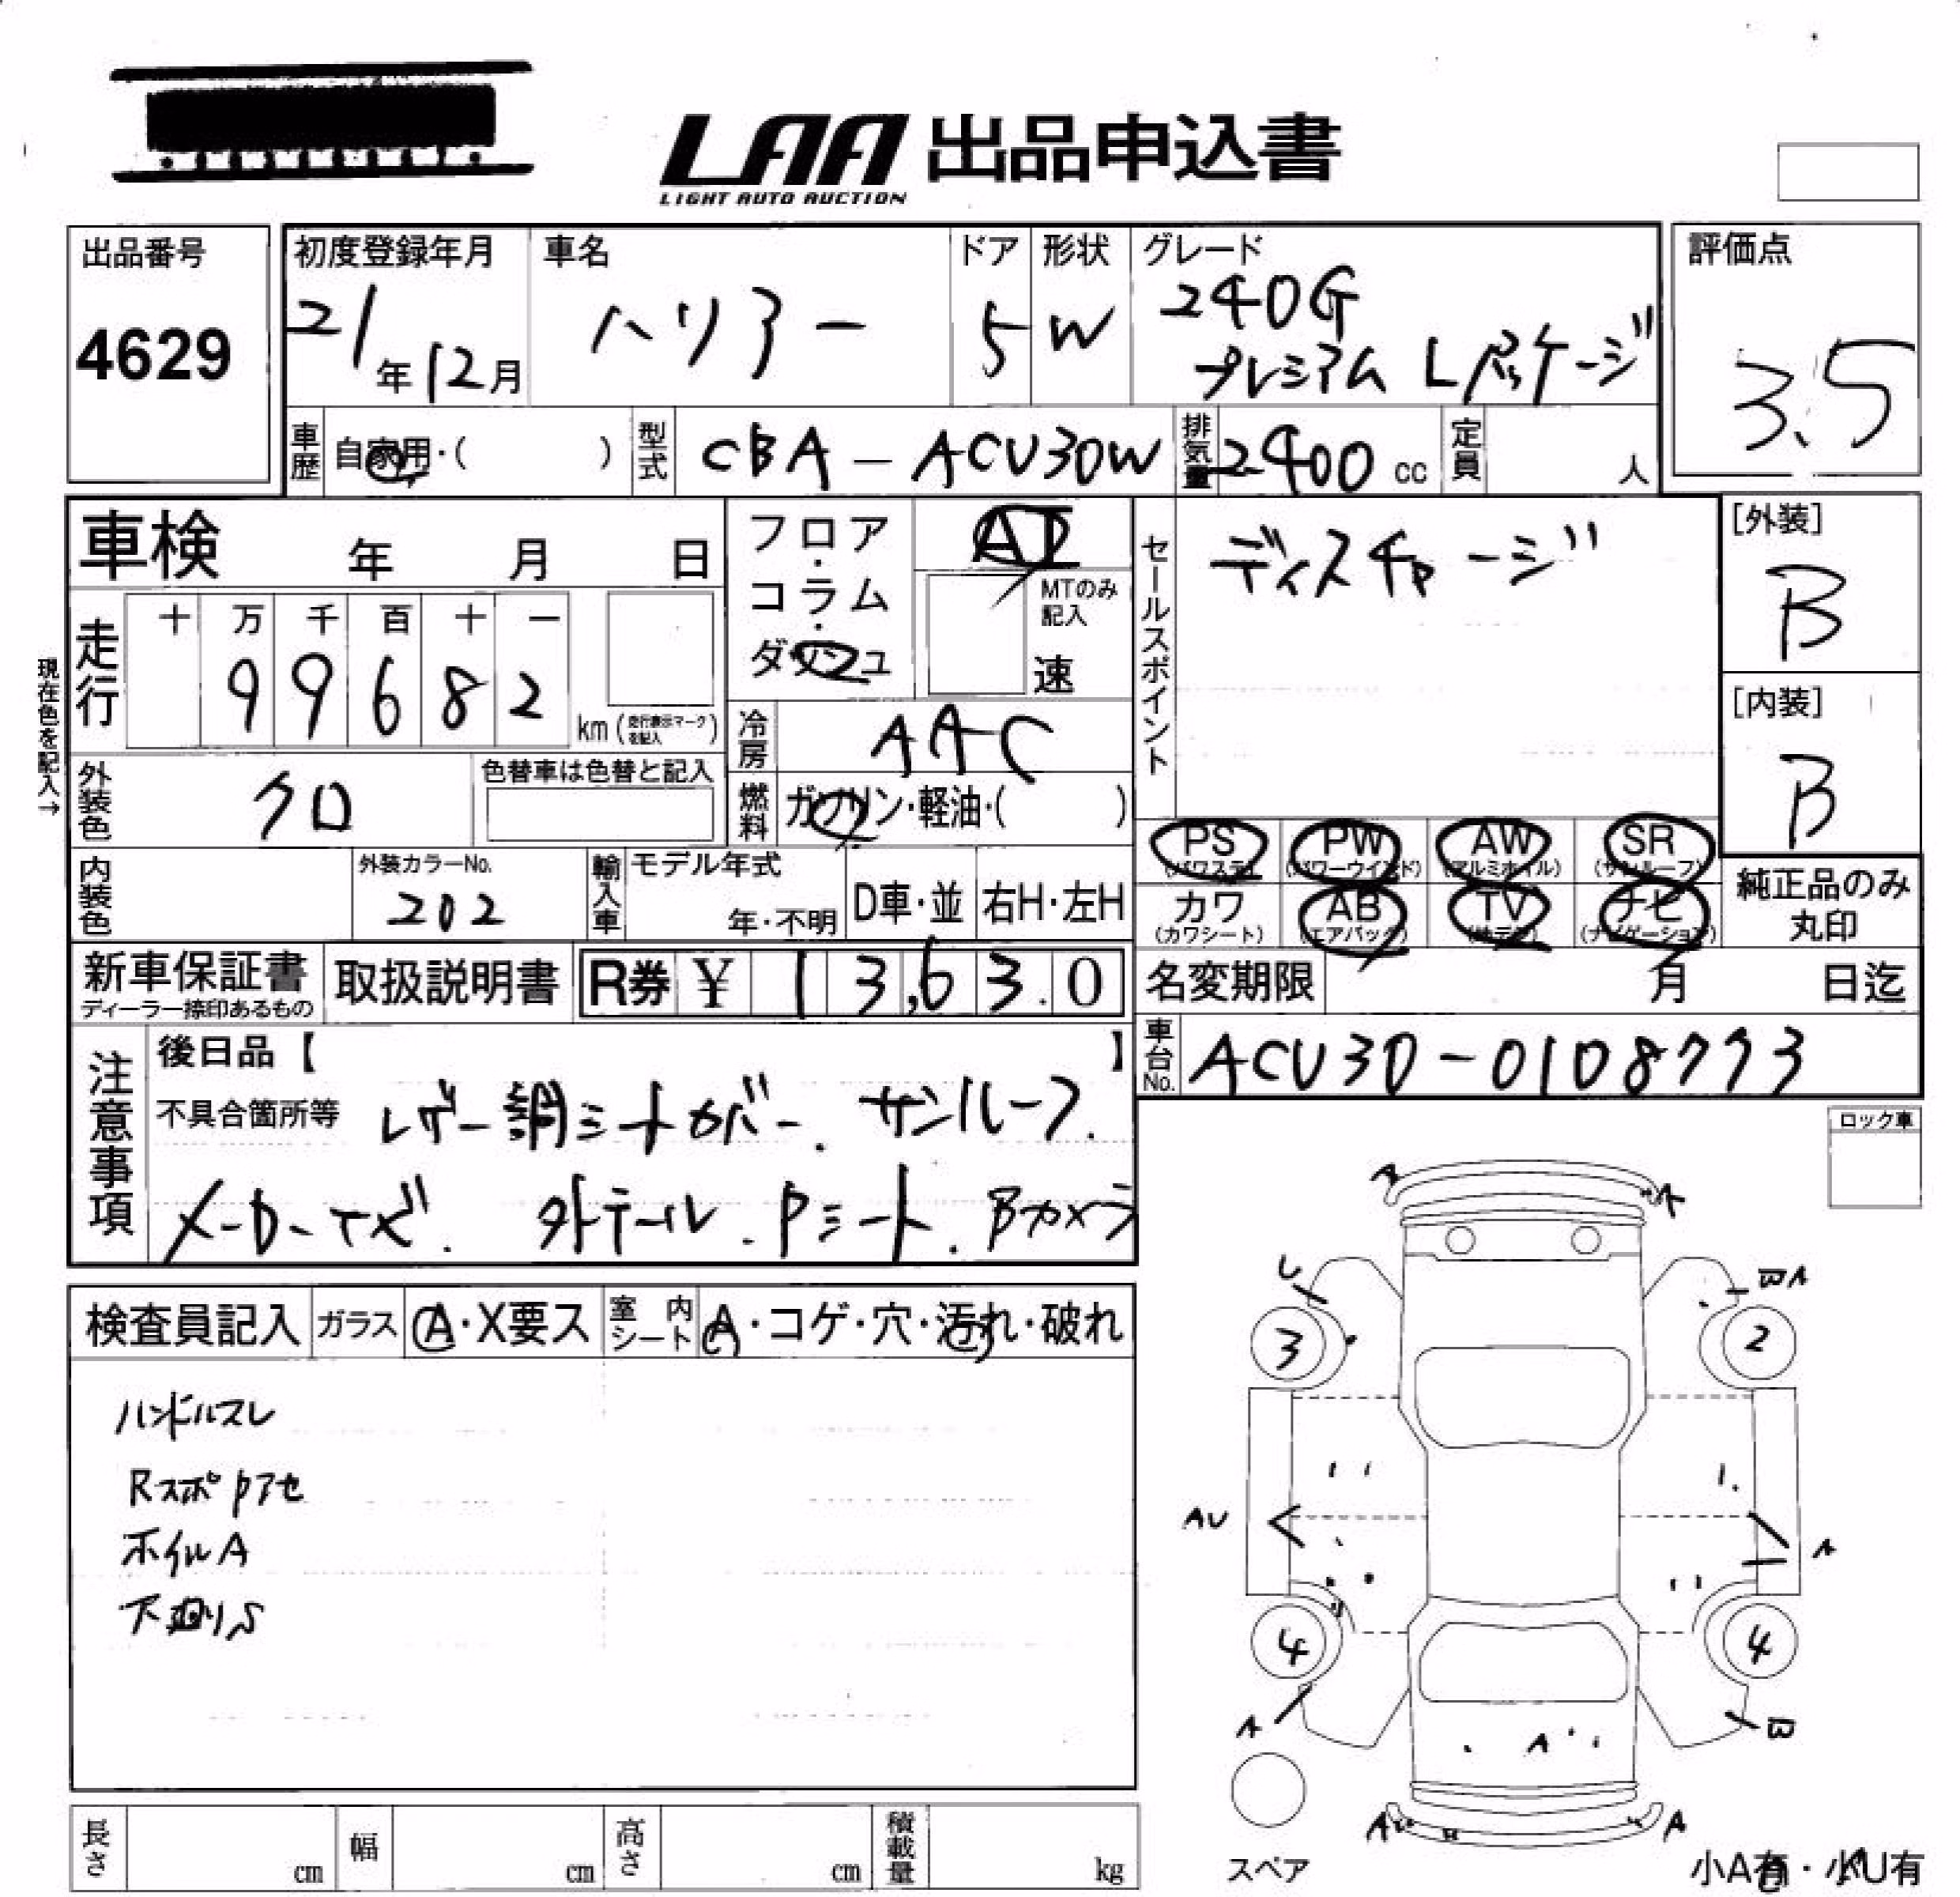 LAA 出品申込書
LIGHT AUTO AUCTION
出品番号
4629
初度登録年月
21年12月
車名
ハリアー
ドア
5
形状
W
グレード
240G
プレミアム Lパッケージ
評価点
3.5
車歴
自家用・( )
型式
CBA-ACU30W
排気量
2400 cc
定員
人
車検 年 月 日
フロア・コラム・ダッシュ
AT
MTのみ記入
速
セールスポイント
ディスチャージ
[外装]
B
[内装]
B
現在色を記入→
走行
十 万 千 百 十 一
9 9 6 8 2
km (走行表示マークを記入)
冷房
AAC
燃料
ガソリン・軽油・( )
外装色
クロ
色替車は色替と記入
内装色
外装カラーNo.
202
輸入車
モデル年式
年・不明
D車・並
右H・左H
PS (パワステ)
PW (パワーウインド)
AW (アルミホイル)
SR (サンルーフ)
カワ (カワシート)
AB (エアバック)
TV
ナビ (ナビゲーション)
純正品のみ丸印
新車保証書
ディーラー捺印あるもの
取扱説明書
R券 ¥ 13,630
名変期限 月 日迄
車台No.
ACU30-0108773
注意事項
後日品【 】
不具合箇所等 レザー調シートカバー. サンルーフ.
メーカーナビ. 外テール. Pシート. Bカメラ
ロック車
検査員記入
ガラス
A・X要ス
室内シート
A・コゲ・穴・汚れ・破れ
ハンドルスレ
ホイルA
下廻りS
A
A
U
WA
3
2
AU
A
4
4
A
W
A
A
A
スペア
小A有・小U有
長さ cm
幅 cm
高さ cm
積載量 kg